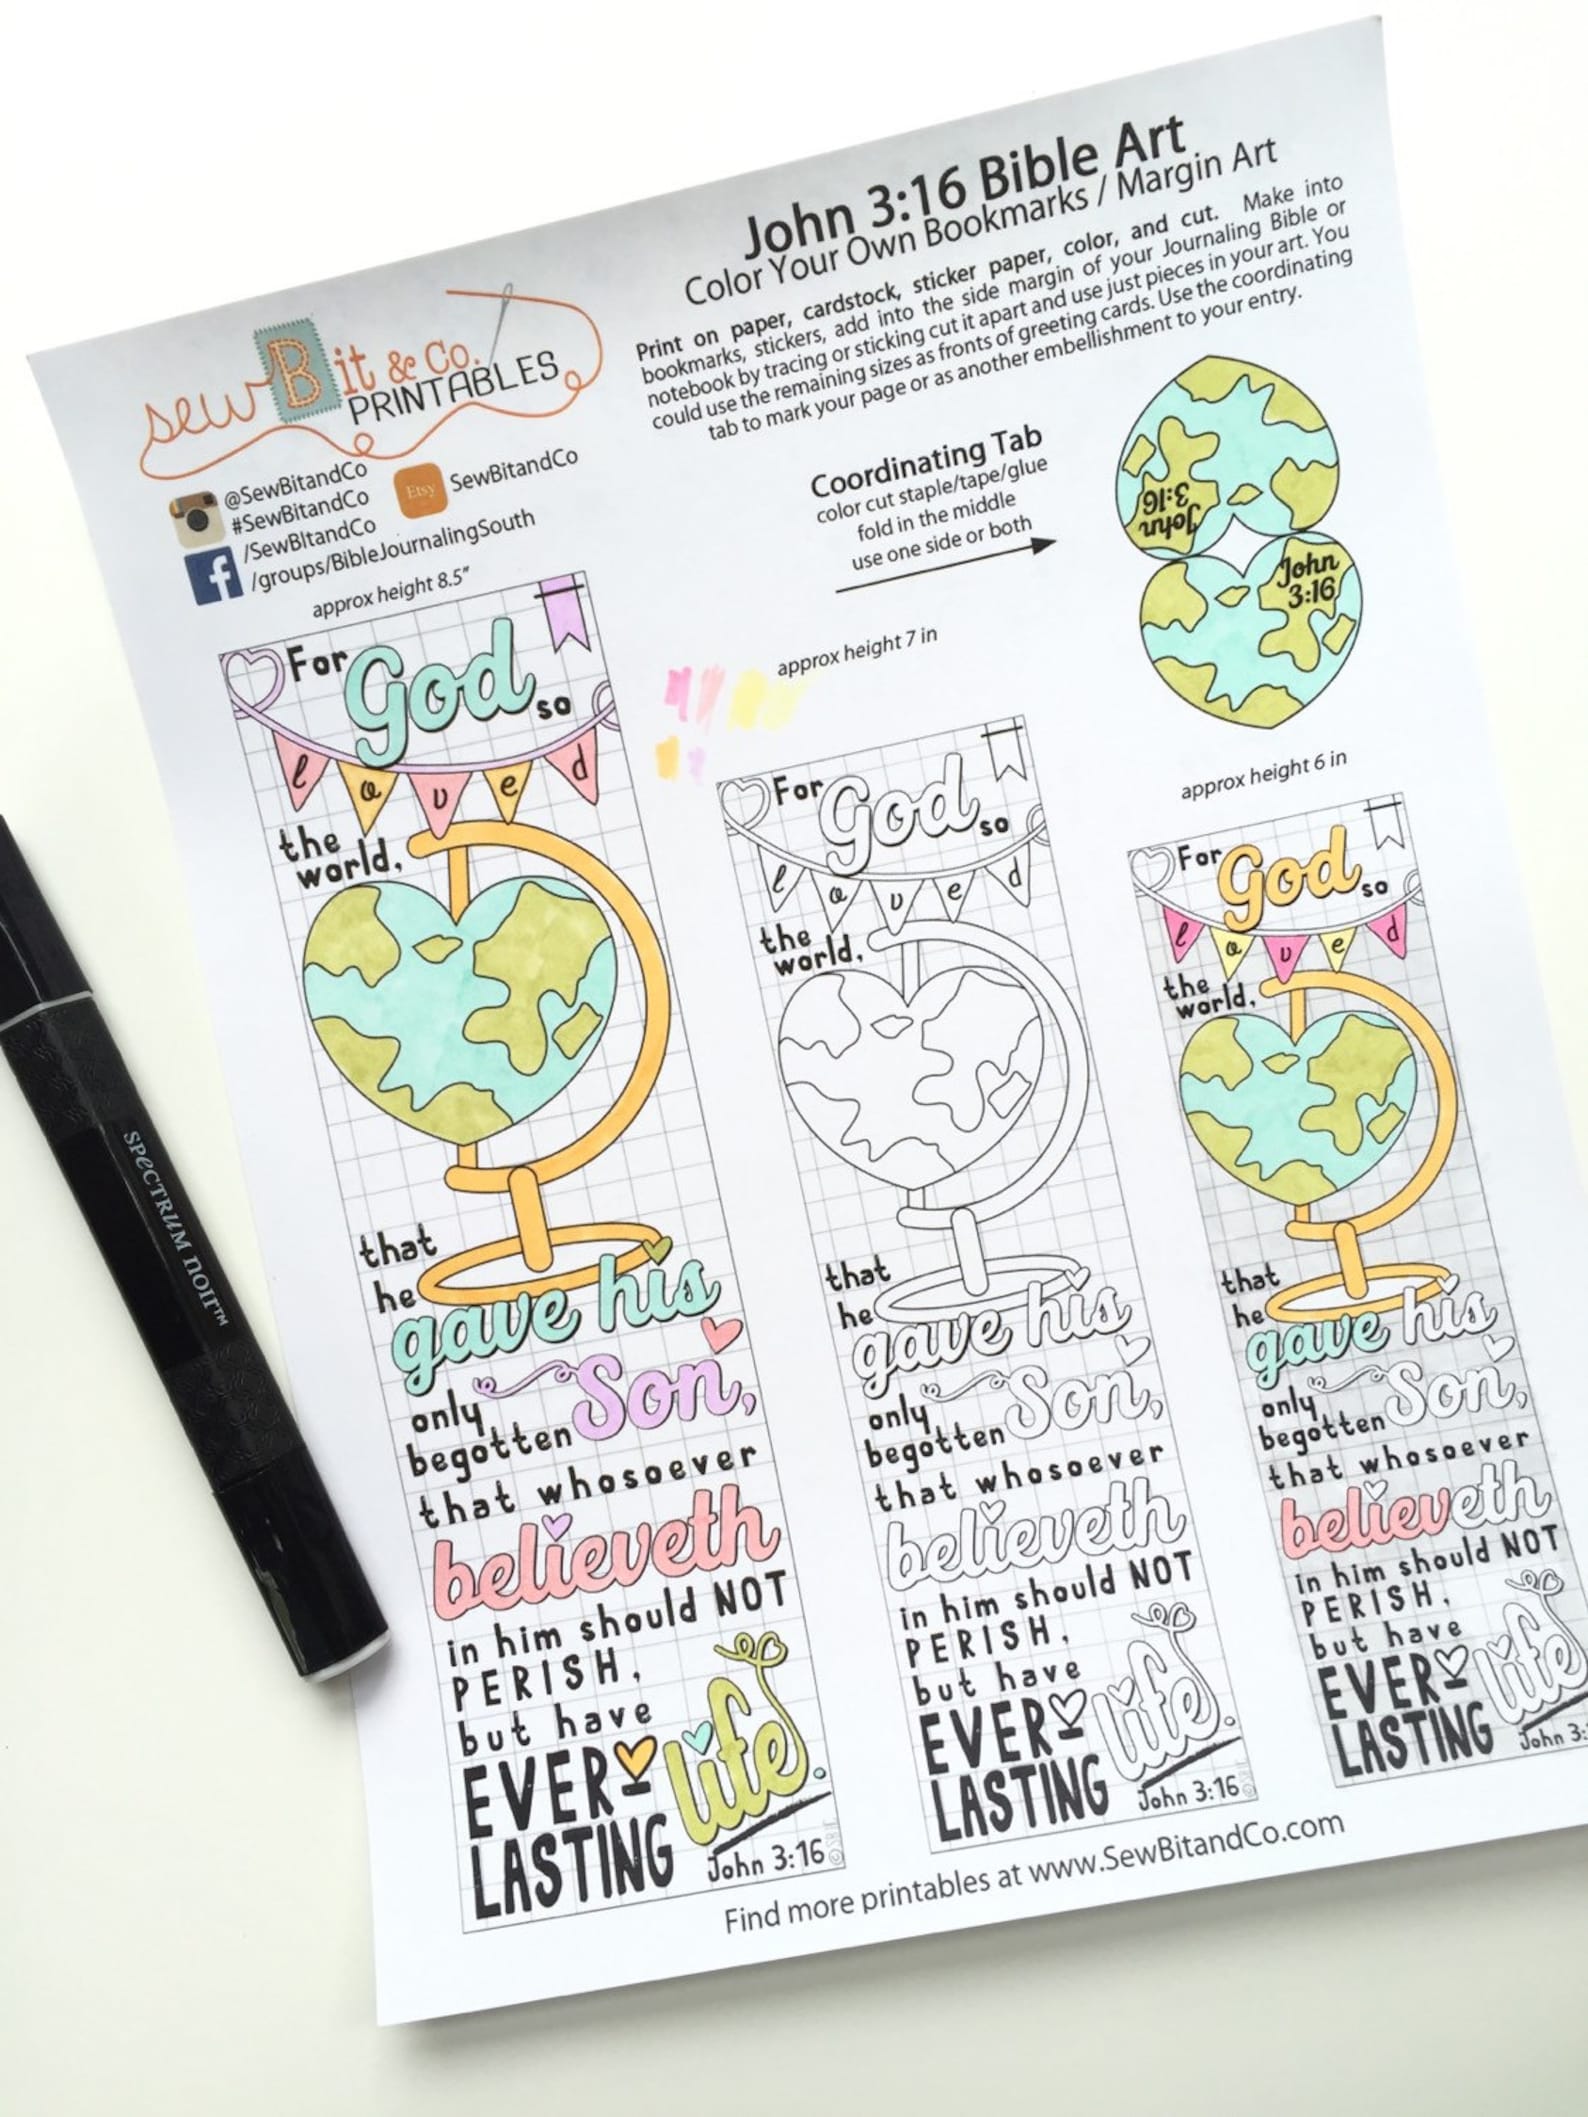 John 3:16 Bible Art
Color Your Own Bookmarks / Margin Art
Print on paper, cardstock, sticker paper, color, and cut. Make into
bookmarks, stickers, add into the side margin of your Journaling Bible or
notebook by tracing or sticking cut it apart and use just pieces in your art. You
could use the remaining sizes as fronts of greeting cards. Use the coordinating
tab to mark your page or as another embellishment to your entry.
sew Bit & Co.
PRINTABLES
@SewBitandCo
#SewBitandCo
Etsy
SewBitandCo
/SewBItandCo
/groups/BibleJournalingSouth
Coordinating Tab
color cut staple/tape/glue
fold in the middle
use one side or both
John
3:16
John
3:16
approx height 8.5"
For God so
loved
the
world,
that
he
gave his
only
begotten Son,
that whosoever
believeth
in him should NOT
PERISH,
but have
EVER-
LASTING life.
John 3:16
approx height 7 in
For God so
loved
the
world,
that
he
gave his
only
begotten Son,
that whosoever
believeth
in him should NOT
PERISH,
but have
EVER-
LASTING life.
John 3:16
approx height 6 in
For God so
loved
the
world,
that
he
gave his
only
begotten Son,
that whosoever
believeth
in him should NOT
PERISH,
but have
EVER-
LASTING life
John 3:
Find more printables at www.SewBitandCo.com
SPECTRUM NOIR™